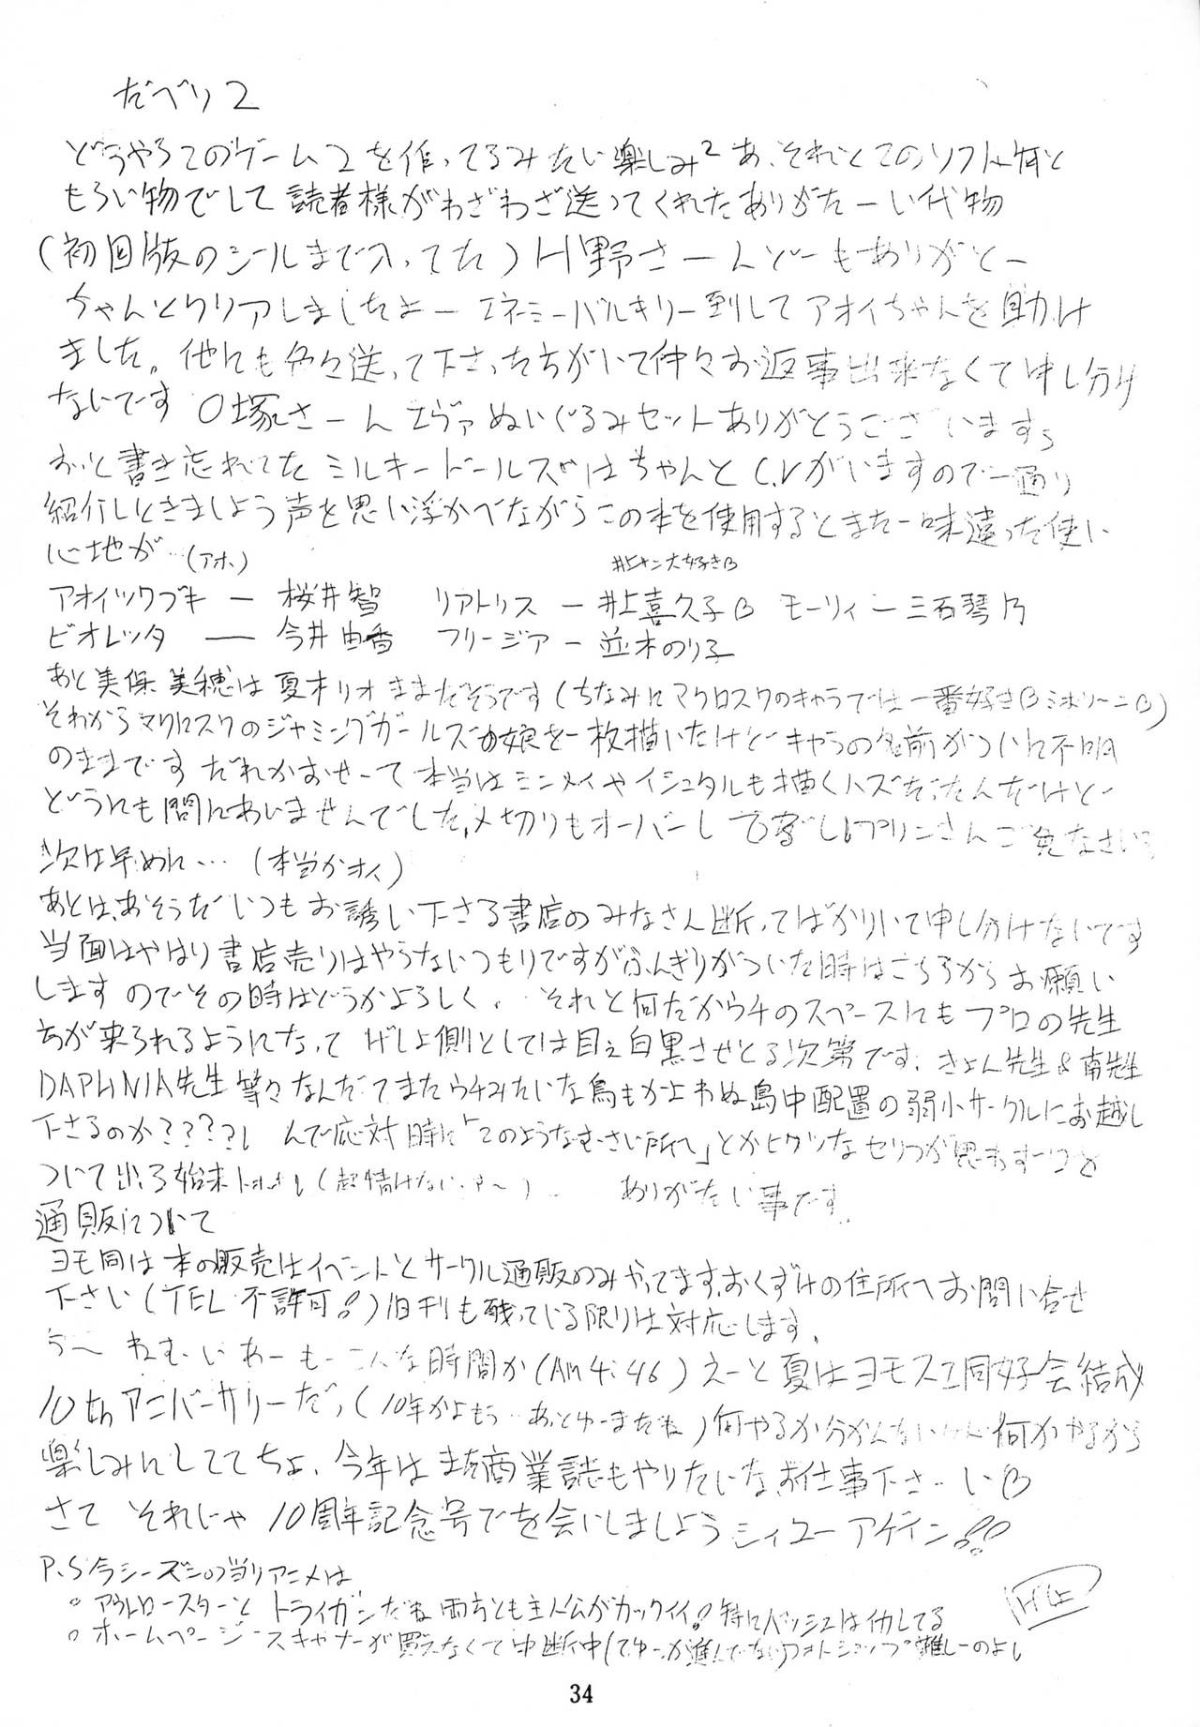 だべり2
どうやらこのゲーム2を作ってるみたい楽しみ²あ、それとこのソフト何と
もらい物でして読者様がわざわざ送ってくれたありがたーい代物
(初回版のシールまで入ってた)H野さーんどーもありがとー
ちゃんとクリアしましたよー エネミーバルキリー倒してアオイちゃんを助け
ました。他にも色々送って下さった方がいて仲々お返事出来なくて申し分け
ないです O塚さーんエヴァぬいぐるみセットありがとうございます。
おっと書き忘れてたミルキードールズはちゃんとC.Vがいますので一通り
紹介しときましょう声を思い浮かべながらこの本を使用するとまた一味違った使い
心地が…(アホ)
井上サン大好き
アオイツワブキ ー 桜井智 リアトリス ー 井上喜久子 モーリィー 三石琴乃
ビオレッタ ー 今井由香 フリージア ー 並木のり子
あと美保美穂は夏樹リオままだそうです(ちなみにマクロスクのキャラでは一番好きミホリーニ)
それからマクロスクのジャミングガールズの娘を一枚描いたけどキャラの名前がついに不明
のままです だれかおせーて 本当はミンメイやイシュタルも描くハズだったんだけど
どうにも間にあいませんでした。〆切りもオーバーし プリンさんご免なさい
次は早めに…(本当かオイ)
あとは、おそうだいつもお誘い下さる書店のみなさん断ってばかりいて申し分けないです
当面はやはり書店売りはやらないつもりですがふんぎりがついた時はこちらからお願い
しますのでその時はどうかよろしく. それと何だかウチのスペースにもプロの先生
方が来られるようになって げしょ側としては目を白黒させとる次第です. きょん先生&南先生
DAPHNIA先生等々なんだってまたウチみたいな鳥もかよわぬ島中配置の弱小サークルにお越し
下さるのか???? んで応対時に「このようなむさい所へ」とかヒクツなセリフが思わず
ついて出る始末 (超情けない) ありがたい事です.
通販について
ヨモ同は本の販売はイベントとサークル通販のみやってます.おくずけの住所へお問い合せ
下さい(TEL不許可!)旧刊も残っている限りは対応します.
うー ねむーいわーもーこんな時間か(Am4:46)えーと夏はヨモスエ同好会結成
10thアニバーサリーだっ(10年かよもう )何やるか分かんないけど何かやるから
楽しみにしててちょ. 今年はまた商業誌もやりたいな、お仕事下さーい
さて それじゃ10周年記念号でお会いしましょうシィユーアゲイン!!
P.S今シーズンの当りアニメは
○ アウトロースターと トライガンだね 両方とも主人公がカックイイ!特にバッシュはイカしてる
○ ホームページ スキャナーが買えなくて中断中 フォトショップ難しーのよし
34